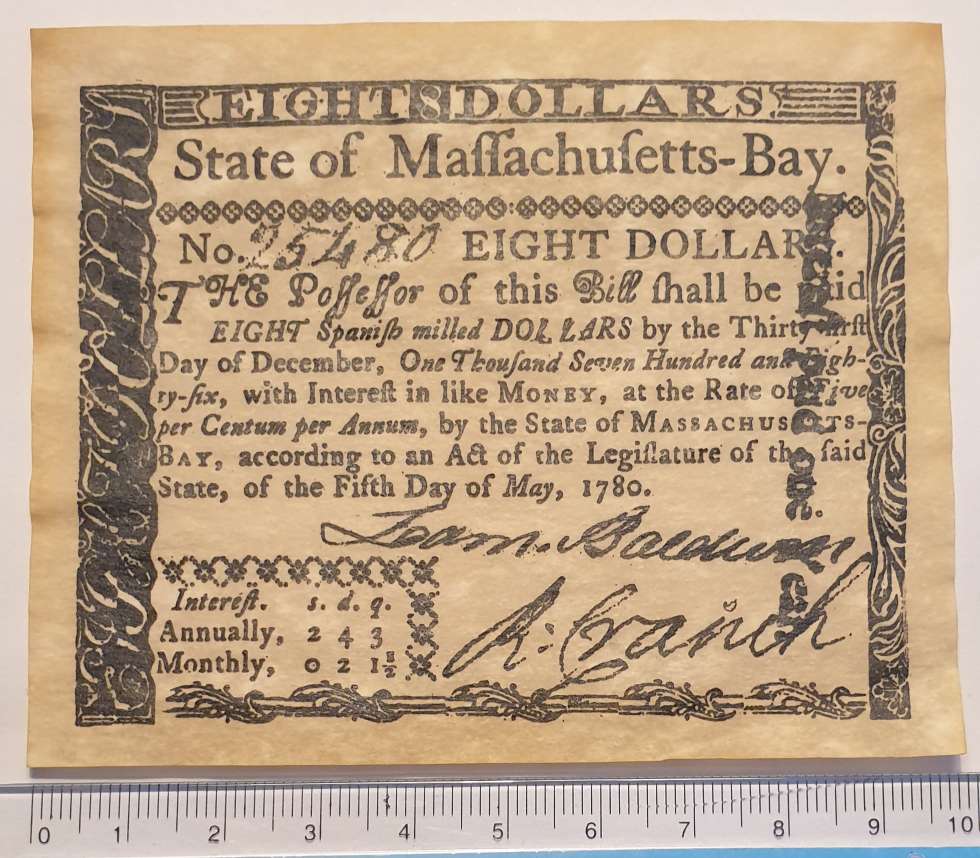 EIGHT 8 DOLLARS
State of Maſſachuſetts-Bay.
No. 25480 EIGHT DOLLARS.
THE Poſſeſſor of this Bill ſhall be paid
EIGHT Spaniſh milled DOLLARS by the Thirty-firſt
Day of December, One Thouſand Seven Hundred and Eigh-
ty-ſix, with Intereſt in like MONEY, at the Rate of Five
per Centum per Annum, by the State of MASSACHUSETTS-
BAY, according to an Act of the Legiſlature of the ſaid
State, of the Fifth Day of May, 1780.
Loam. Baldwin
R: Cranch
Intereſt. s. d. q.
Annually, 2 4 3
Monthly, 0 2 1½
0 1 2 3 4 5 6 7 8 9 10